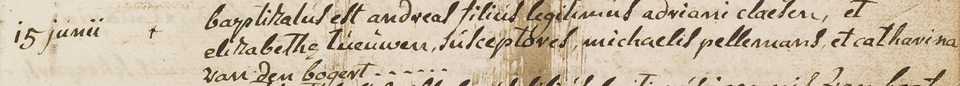 15 junii + baptizatus est andreas filius legitimus adriani claesen, et
elizabethe Leeuwen, susceptores, michaelis pellemans, et catharina
van den bogert - - - - - -